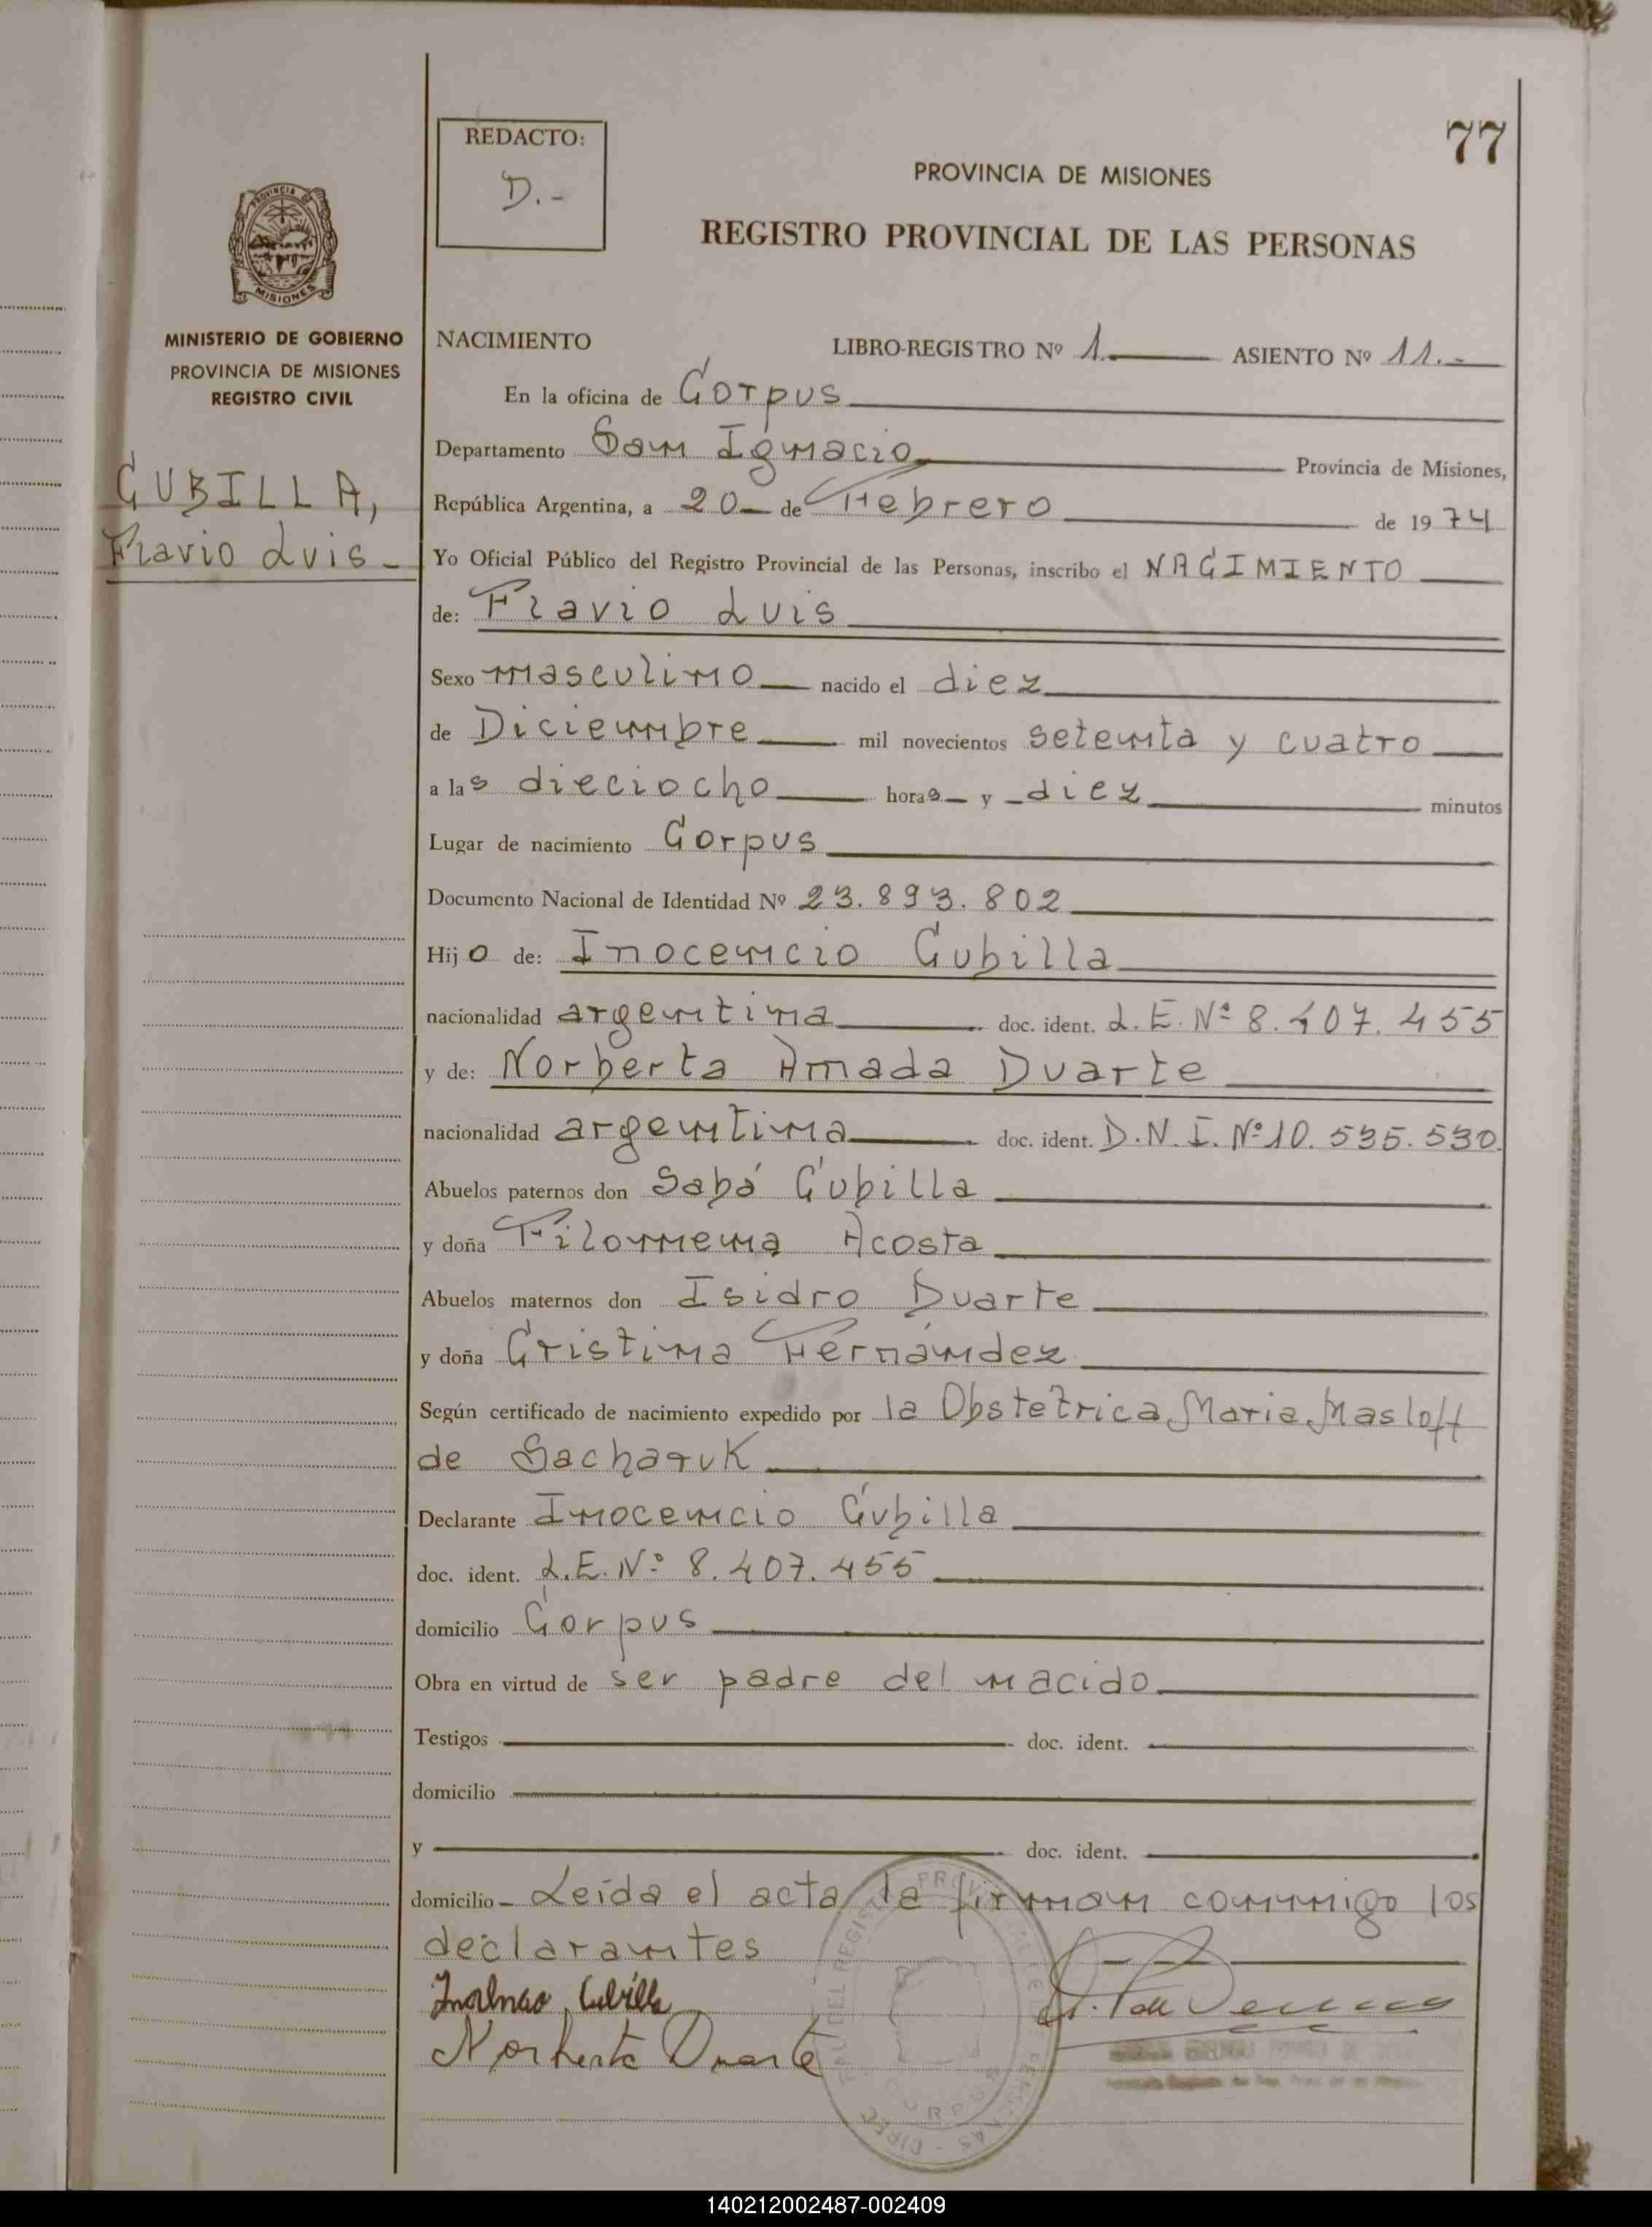 77
REDACTO:
D.-
PROVINCIA DE MISIONES
REGISTRO PROVINCIAL DE LAS PERSONAS
PROVINCIA
MISIONES
MINISTERIO DE GOBIERNO
PROVINCIA DE MISIONES
REGISTRO CIVIL
CUBILLA,
Flavio Luis -
NACIMIENTO LIBRO-REGISTRO Nº 1. ASIENTO Nº 11.-
En la oficina de Corpus
Departamento San Ignacio Provincia de Misiones,
República Argentina, a 20 de Febrero de 1974
Yo Oficial Público del Registro Provincial de las Personas, inscribo el NACIMIENTO
de: Flavio Luis
Sexo masculino nacido el diez
de Diciembre mil novecientos setenta y cuatro
a las dieciocho horas y diez minutos
Lugar de nacimiento Corpus
Documento Nacional de Identidad Nº 23.893.802
Hijo de: Inocencio Cubilla
nacionalidad argentina doc. ident. L.E. Nº 8.407.455
y de: Norberta Amada Duarte
nacionalidad argentina doc. ident. D.N.I. Nº 10.535.530
Abuelos paternos don Sabá Cubilla
y doña Filomena Acosta
Abuelos maternos don Isidro Duarte
y doña Cristina Fernández
Según certificado de nacimiento expedido por la Obstetrica Maria Masloff
de Sachaquk
Declarante Inocencio Cubilla
doc. ident. L.E. Nº 8.407.455
domicilio Corpus
Obra en virtud de ser padre del nacido
Testigos doc. ident.
domicilio
y doc. ident.
domicilio - Leída el acta la firman conmigo los
declarantes
Cubilla
Norberta Duarte
140212002487-002409